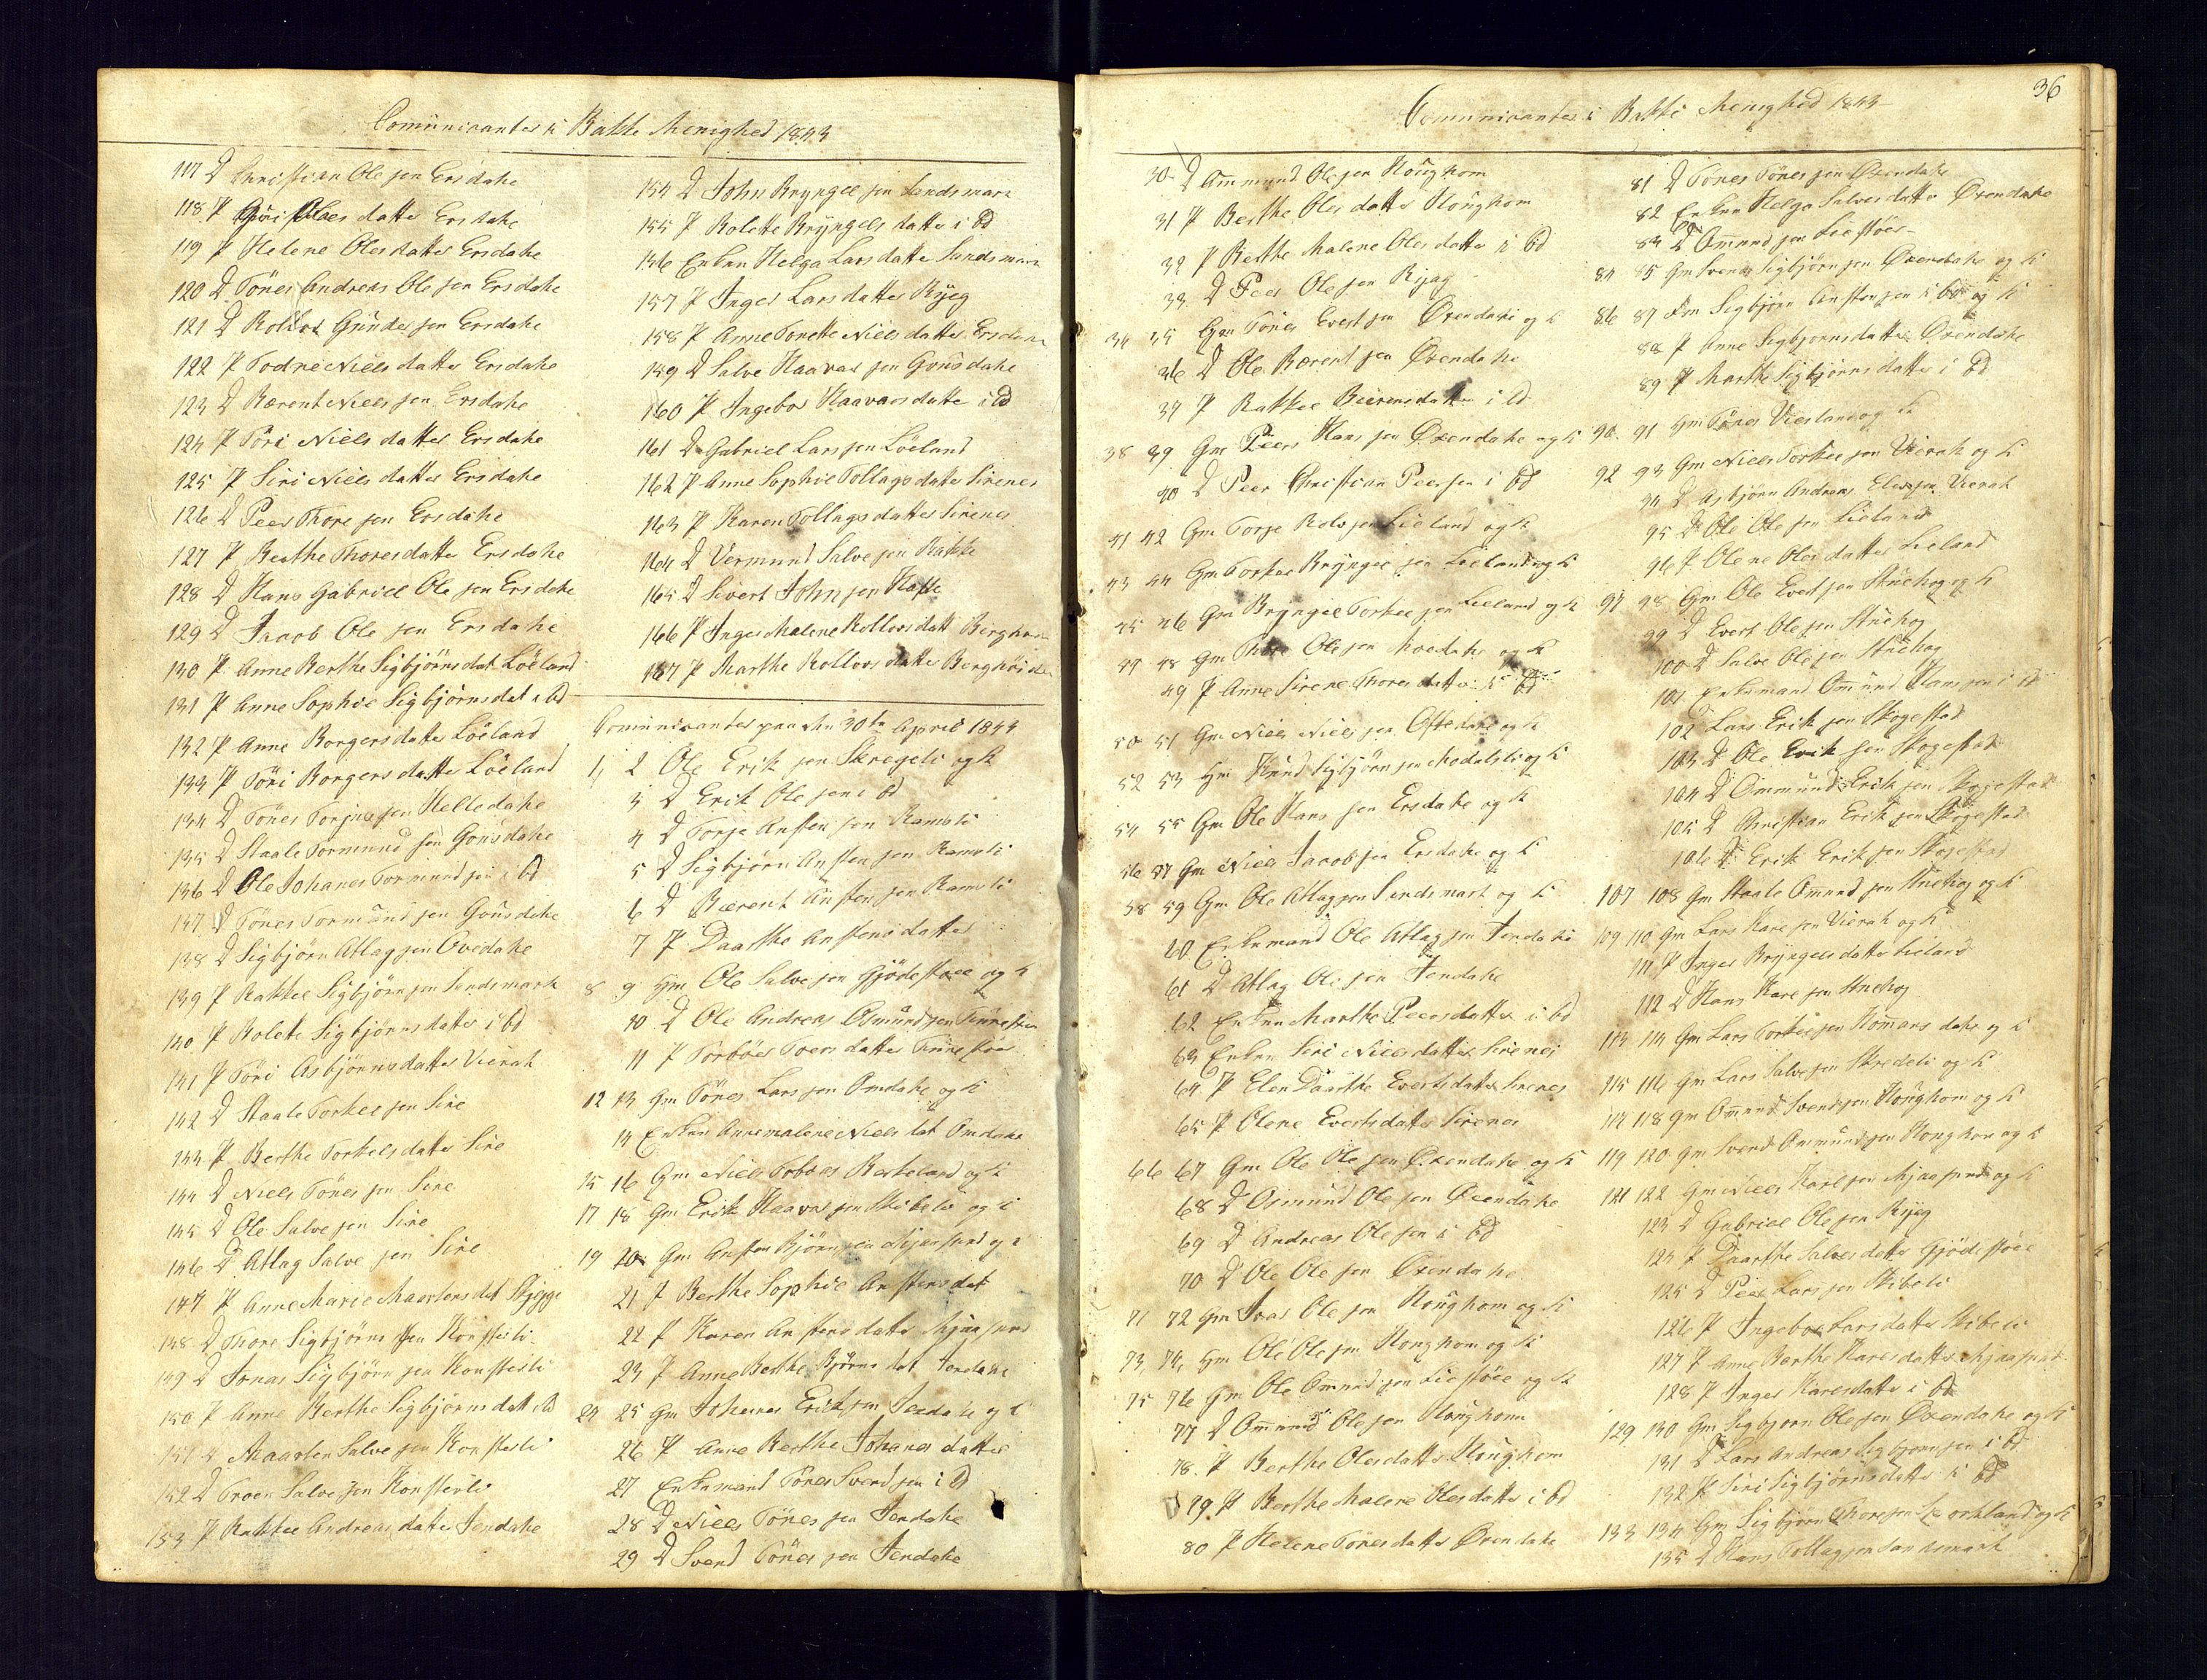 Comunicanter i Bakke Menighed 1843
117 D Christian Ole sen Ersdahe
118 P Guri Oles datter Ersdahe
119 P Helene Olesdatter Ersdahe
120 D Tönes Andreas Ole sen Ersdahe
121 D Rollov Gunder sen Ersdahe
122 P Todne Niels datter Ersdahe
123 D Berent Niels sen Ersdahe
124 P Töri Niels datter Ersdahe
125 P Siri Niels datter Ersdahe
126 D Peer Thore sen Ersdahe
127 P Berthe Thoresdatter Ersdahe
128 D Hans Gabriel Ole sen Ersdahe
129 D Jacob Ole sen Ersdahe
130 P Anne Berthe Sigbjörnsdat Löeland
131 P Anne Sophie Sigbjörnsdat i bd
132 P Anne Borgersdatter Löeland
133 P Töri Borgers datter Löeland
134 D Tönes Torjus sen Helledahe
135 D Staale Tormund sen Gousdahe
136 D Ole Johanes Tormund sen i bd
137 D Tönes Tormund sen Gousdahe
138 D Sigbjörn Atlag sen Ovedahe
139 P Rakkel Sigbjörn sen Sandsmark
140 P Rolete Sigbjörnsdatter i bd
141 P Töri Asbjörnsdatter Vierak
142 D Staale Torkel sen Sire
143 P Berthe Torkelsdatter Sire
144 D Niels Tönes sen Sire
145 D Ole Salve sen Sire
146 D Atlag Salve sen Sire
147 P Anne Marie Maartensdat Skjegge
148 D Thore Sigbjörns sen Konsteli
149 D Jonas Sigbjörn sen Konsteli
150 P Anne Berthe Sigbjörnsdatt i bd
151 D Maarten Salve sen Konsteli
152 D Troen Salve sen Konsteli
153 P Rakkel Andreas datter Jendahe
154 D John Bryngel sen Sandsmark
155 P Rolette Bryngels datter i bd
156 Enken Helga Lars datter Sandsmark
157 P Inger Larsdatter Ryeg
158 P Anne Tonette Niels datter Ersdahe
159 D Salve Haavar sen Gousdahe
160 P Ingebor Haavarsdatte i bd
161 D Gabriel Lars sen Löeland
162 P Anne Sophie Tollagsdatter Sirenes
163 P Karen Tollagsdatter Sirenes
164 D Vermund Salve sen Bakke
165 D Sivert John sen Hafte
166 P Inger Malene Rollovsdatt Berghom
167 P Marthe Rollovsdatter Berghom
Comunicanter paa den 30te April 1843
1, 2 Ole Erik sen Skregeli og K
3 D Erik Ole sen i bd
4 D Torje Ansten sen Ramsli
5 D Sigbjörn Ansten sen Ramsli
6 D Berent Ansten sen Ramsli
7 P Daarthe Anstens datter
8 9 Hm Ole Salve sen Gjödestoel og K
10 D Ole Andreas Osmund sen
11 P Torbör Toers datter
12 13 Gm Tönes Lars sen Omdahe og K
14 Enken Annemalene Niels dat Omdahe
15 16 Gm Niels Tobias Birkeland og K
17 18 Gm Erik Haavar sen Skibeli og K
19 20 Gm Ansten Björn sen Mjaasund og K
21 P Berthe Sophie Anstens dat
22 P Karen Anstens datter Mjaasund
23 P Anne Berthe Björns dat Jendahe
24 25 Gm Johanes Erik sen Jendahe og K
26 P Anne Berthe Johanes datter
27 Enkemand Tönes Svend sen i bd
28 D Niels Tönes sen Jendahe
29 D Svend Tönes sen Jendahe
36
Comunicanter i Bakke Menighed 1843
30 D Ommund Ole sen Houghom
31 P Berthe Oles datter Houghom
32 P Berthe Malene Olesdatter i bd
33 D Peer Ole sen Ryag
34 35 Gm Tönes Evert sen Øxendahe og K
36 D Ole Berent sen Øxendahe
37 P Rakkel Beerensdatter i bd
38 39 Gm Peer Hans sen Øxendahe og K
40 D Peer Christian Peersen i bd
41 42 Gm Torje Rolv sen Lieland og K
43 44 Gm Torkel Bryngel sen Lieland og K
45 46 Gm Bryngel Torkel sen Lieland og K
47 48 Gm Thore Ole sen Moedahe og K
49 P Anne Sirene Thores datter i bd
50 51 Gm Niels Niels sen Oftedahe og K
52 53 Hm Knud Sigbjörn sen Modalsli og K
54 55 Gm Ole Hans sen Ersdahe og K
56 57 Gm Niels Jacob sen Ersdahe og K
58 59 Gm Ole Atlag sen Sandsmark og K
60 Enkemand Ole Atlag sen Jendahe
61 D Atlag Ole sen Jendahe
62 Enken Marthe Peersdatter i bd
63 Enken Siri Nielsdatter Sirenes
64 P Elen Daarthe Evertsdatter Sirenes
65 P Olene Evertsdatter Sirenes
66 67 Gm Ole Ole sen Øxendahe og K
68 D Osmund Ole sen Øxendahe
69 D Andreas Ole sen i bd
70 D Ole Ole sen Øxendahe
71 72 Gm Ivar Ole sen Houghom og K
73, 74, Hm Ole Ole sen Houghom og K
75 76 Gm Ole Ommund sen Liestöel og K
77 D Ommund Ole sen Houghom
78 P Berthe Olesdatter Houghom
79 P Berthe Malene Olesdatter i bd
80 P Helene Tönesdatter Øxendahe
81 D Tönes Tönes sen Øxendahe
82 Enken Helga Salvesdatter Øxendahe
83 D Ommund sen Liestöel
84 85 Gm Svend Sigbjörn sen Øxendahe og K
86 87 Gm Sigbjörn Ansten sen i bd og K
88 P Anne Sigbjörnsdatter Øxendahe
89 P Marthe Sigbjörnsdatter i bd
90 91 Hm Tönes Viesland og K
92 93 Gm Niels Torkel sen Vierak og K
94 D Asbjörn Andreas Elias sen Vierak
95 D Ole Ole sen Lieland
96 P Olene Olesdatter Lieland
97 98 Gm Ole Evert sen Stuehog og K
99 D Evert Ole sen Stuehog
100 D Salve Ole sen Stuehog
101 Enkemand Omund Hans sen i bd
102 Lars Erik sen Skogestad
103 D Ole Erik sen Skogestad
104 D Ommund Erik sen Skogestad
105 D Christian Erik sen Skogestad
106 D Erik Erik sen Skogestad
107 108 Gm Staale Omund sen Stuehog og K
109 110 Gm Lars Kare sen Vierak og K
111 P Inger Bryngelsdatter Lieland
112 D Hans Kare sen Stuehog
113 114 Gm Lars Torkel sen Homansdahe og K
115 116 Gm Lars Salve sen Skredeli og K
117 118 Gm Omund Svend sen Houghom og K
119 120 Gm Svend Ommund sen Houghom og K
121 122 Gm Niels Karl sen Mjaasund og K
123 D Gabriel Ole sen Ryeg
124 P Daarthe Salvesdatter Gjödestöel
125 D Peer Lars sen Skibeli
126 P Ingebor Larsdatter Skibeli
127 P Anne Berthe Karesdatter Mjaasund
128 P Inger Karesdatter i bd
129, 130 Gm Sigbjorn Ole sen Øxendahe og K
131 D Lars Andreas Sigbjorn sen i bd
132 P Siri Sigbjörnsdatter i bd
133 134 Gm Sigbjörn Thore sen og K
135 D Hans Tollag sen Sandsmark